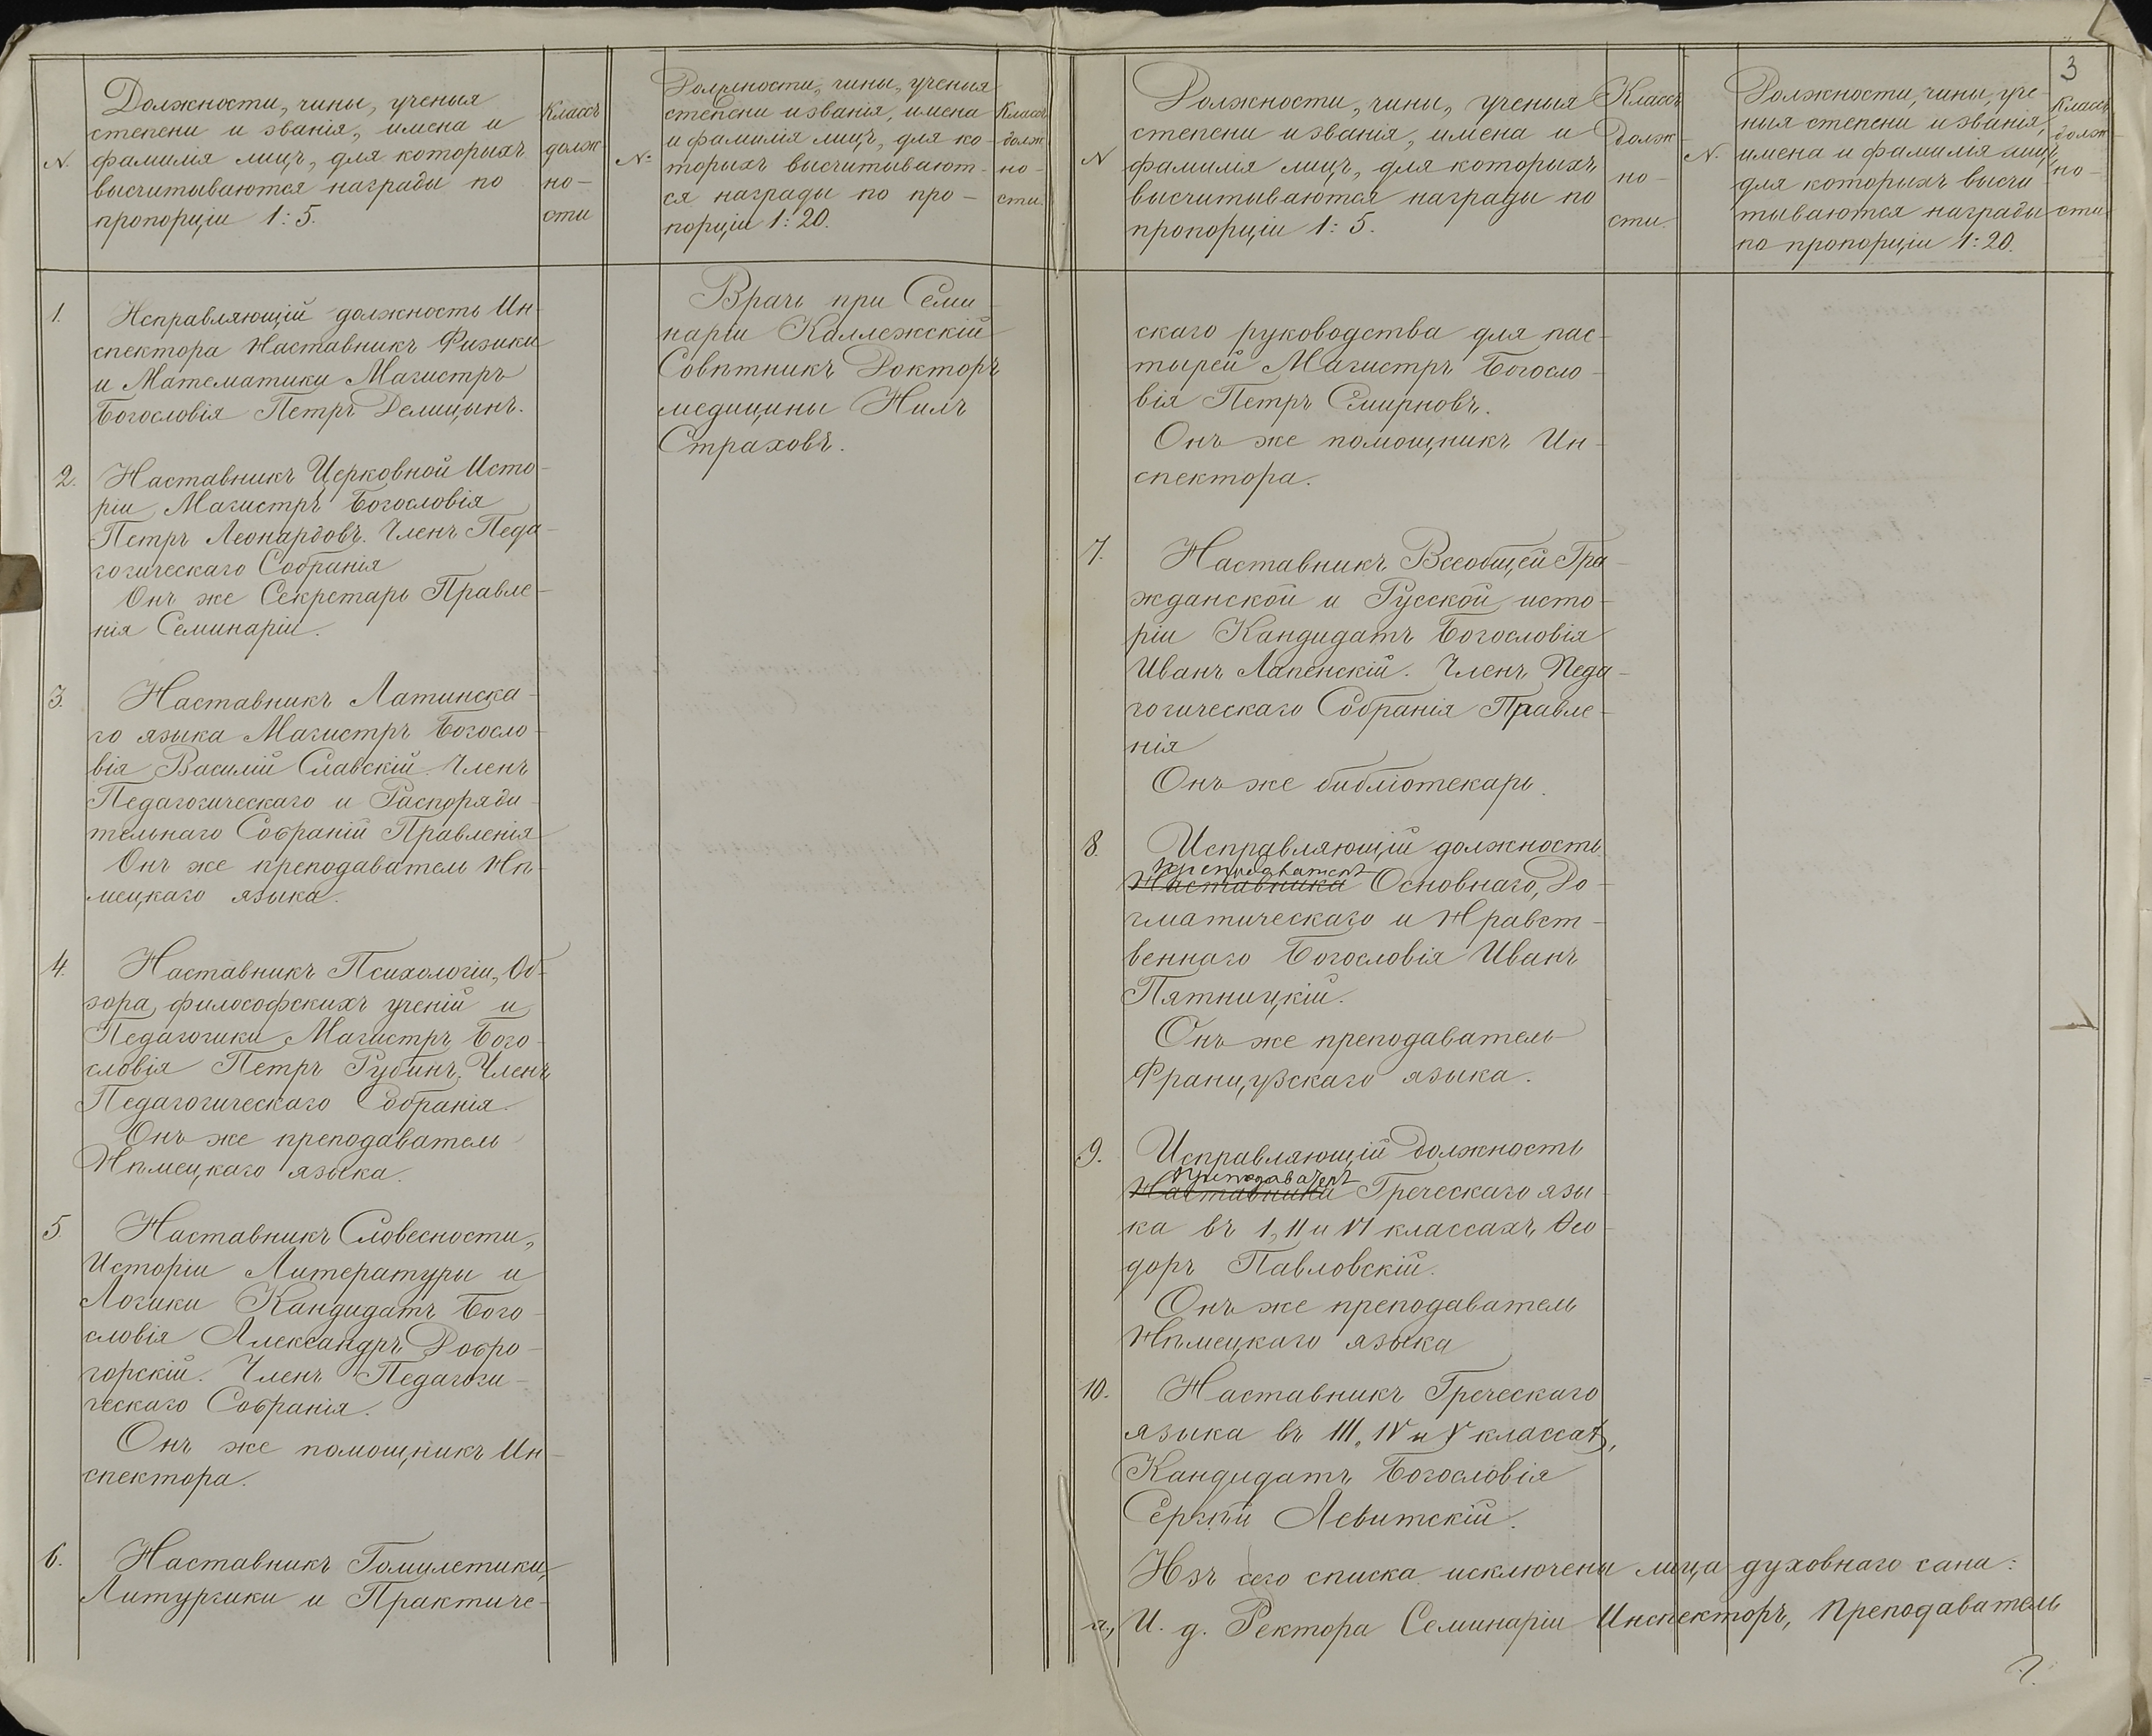 N.
Должности, чины, ученыя
степени и званія, имена и
фамилія лицъ, для которыхъ
высчитываются награды по
пропорціи 1:5.
Классъ
долж-
но-
сти
N:
Должности, чины, ученыя
степени и званія, имена
и фамилія лицъ, для ко-
торыхъ высчитывают-
ся награды по про-
порціи 1:20.
Классъ
долж-
но-
сти.
1. Исправляющій должность Ин-
спектора Наставникъ Физики
и Математики Магистръ
Богословія Петръ Делицынъ.
2. Наставникъ Церковной Исто-
ріи, Магистръ Богословія
Петръ Леонардовъ. Членъ Педа-
гогическаго Собранія
Онъ же Секретарь Правле-
нія Семинаріи.
3. Наставникъ Латинска-
го языка Магистръ Богосло-
вія Василій Славскій. Членъ
Педагогическаго и Распоряди-
тельнаго Собраній Правленія
Онъ же преподаватель Нѣ-
мецкаго языка.
4. Наставникъ Психологіи, Об-
зора философскихъ ученій и
Педагогики Магистръ Бого-
словія Петръ Рубинъ. Членъ
Педагогическаго Собранія.
Онъ же преподаватель
Нѣмецкаго языка.
5. Наставникъ Словесности,
Исторіи Литературы и
Логики Кандидатъ Бого-
словія Александръ Добро-
горскій. Членъ Педагоги-
ческаго Собранія.
Онъ же помощникъ Ин-
спектора.
6. Наставникъ Гомилетики,
Литургики и Практиче-
Врачъ при Семи-
наріи Коллежскій
Совѣтникъ Докторъ
медицины Нилъ
Страховъ.
3
N
Должности, чины, ученыя
степени и званія, имена и
фамилія лицъ, для которыхъ
высчитываются награды по
пропорціи 1:5.
Классъ
долж-
но-
сти.
N.
Должности, чины, уче-
ныя степени и званія,
имена и фамилія лицъ,
для которыхъ высчи-
тываются награды
по пропорціи 1:20.
Классъ
долж-
но-
сти
скаго руководства для пас-
тырей Магистръ Богосло-
вія Петръ Смирновъ.
Онъ же помощникъ Ин-
спектора.
7. Наставникъ Всеобщей Гра-
жданской и Русской исто-
ріи Кандидатъ Богословія
Иванъ Лапенскій. Членъ Педа-
гогическаго Собранія Правле-
нія
Онъ же библіотекарь.
8. Исправляющій должность
преподавателя
Наставника Основнаго, До-
гматическаго и Нравст-
веннаго Богословія Иванъ
Пятницкій.
Онъ же преподаватель
Французскаго языка.
9. Исправляющій должность
преподавателя
Наставника Греческаго язы-
ка въ I, II и VI классахъ Ѳео-
доръ Павловскій.
Онъ же преподаватель
Нѣмецкаго языка
10. Наставникъ Греческаго
языка въ III, IV и V классахъ,
Кандидатъ Богословія
Сергѣй Левитскій.
Изъ сего списка исключены лица духовнаго сана:
а, И. д. Ректора Семинаріи Инспекторъ, Преподаватель